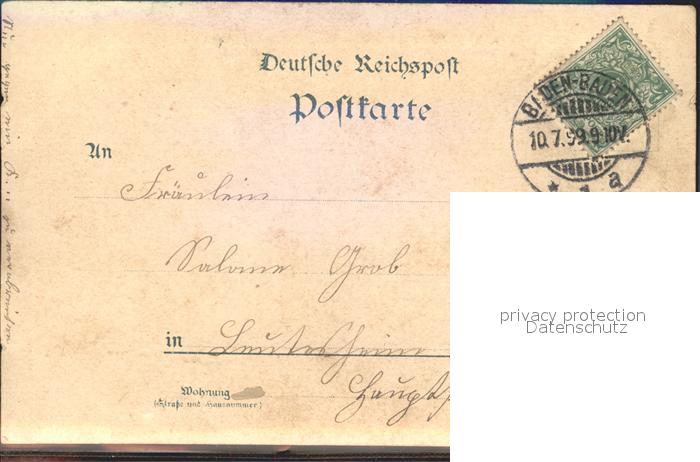 Deutsche Reichspost
Postkarte
BADEN-BADEN
10.7.99.9-10V.
* 1 a
An
Fräulein
Salome Grob
in Leutesheim
Haupts
Wohnung
(Straße und Hausnummer)
privacy protection
Datenschutz